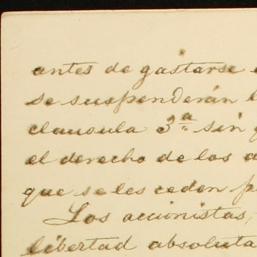 antes de gastarse
se suspenderán
clausula 3ª sin
el derecho de los
que se les ceden
Los accionistas,
libertad absoluta